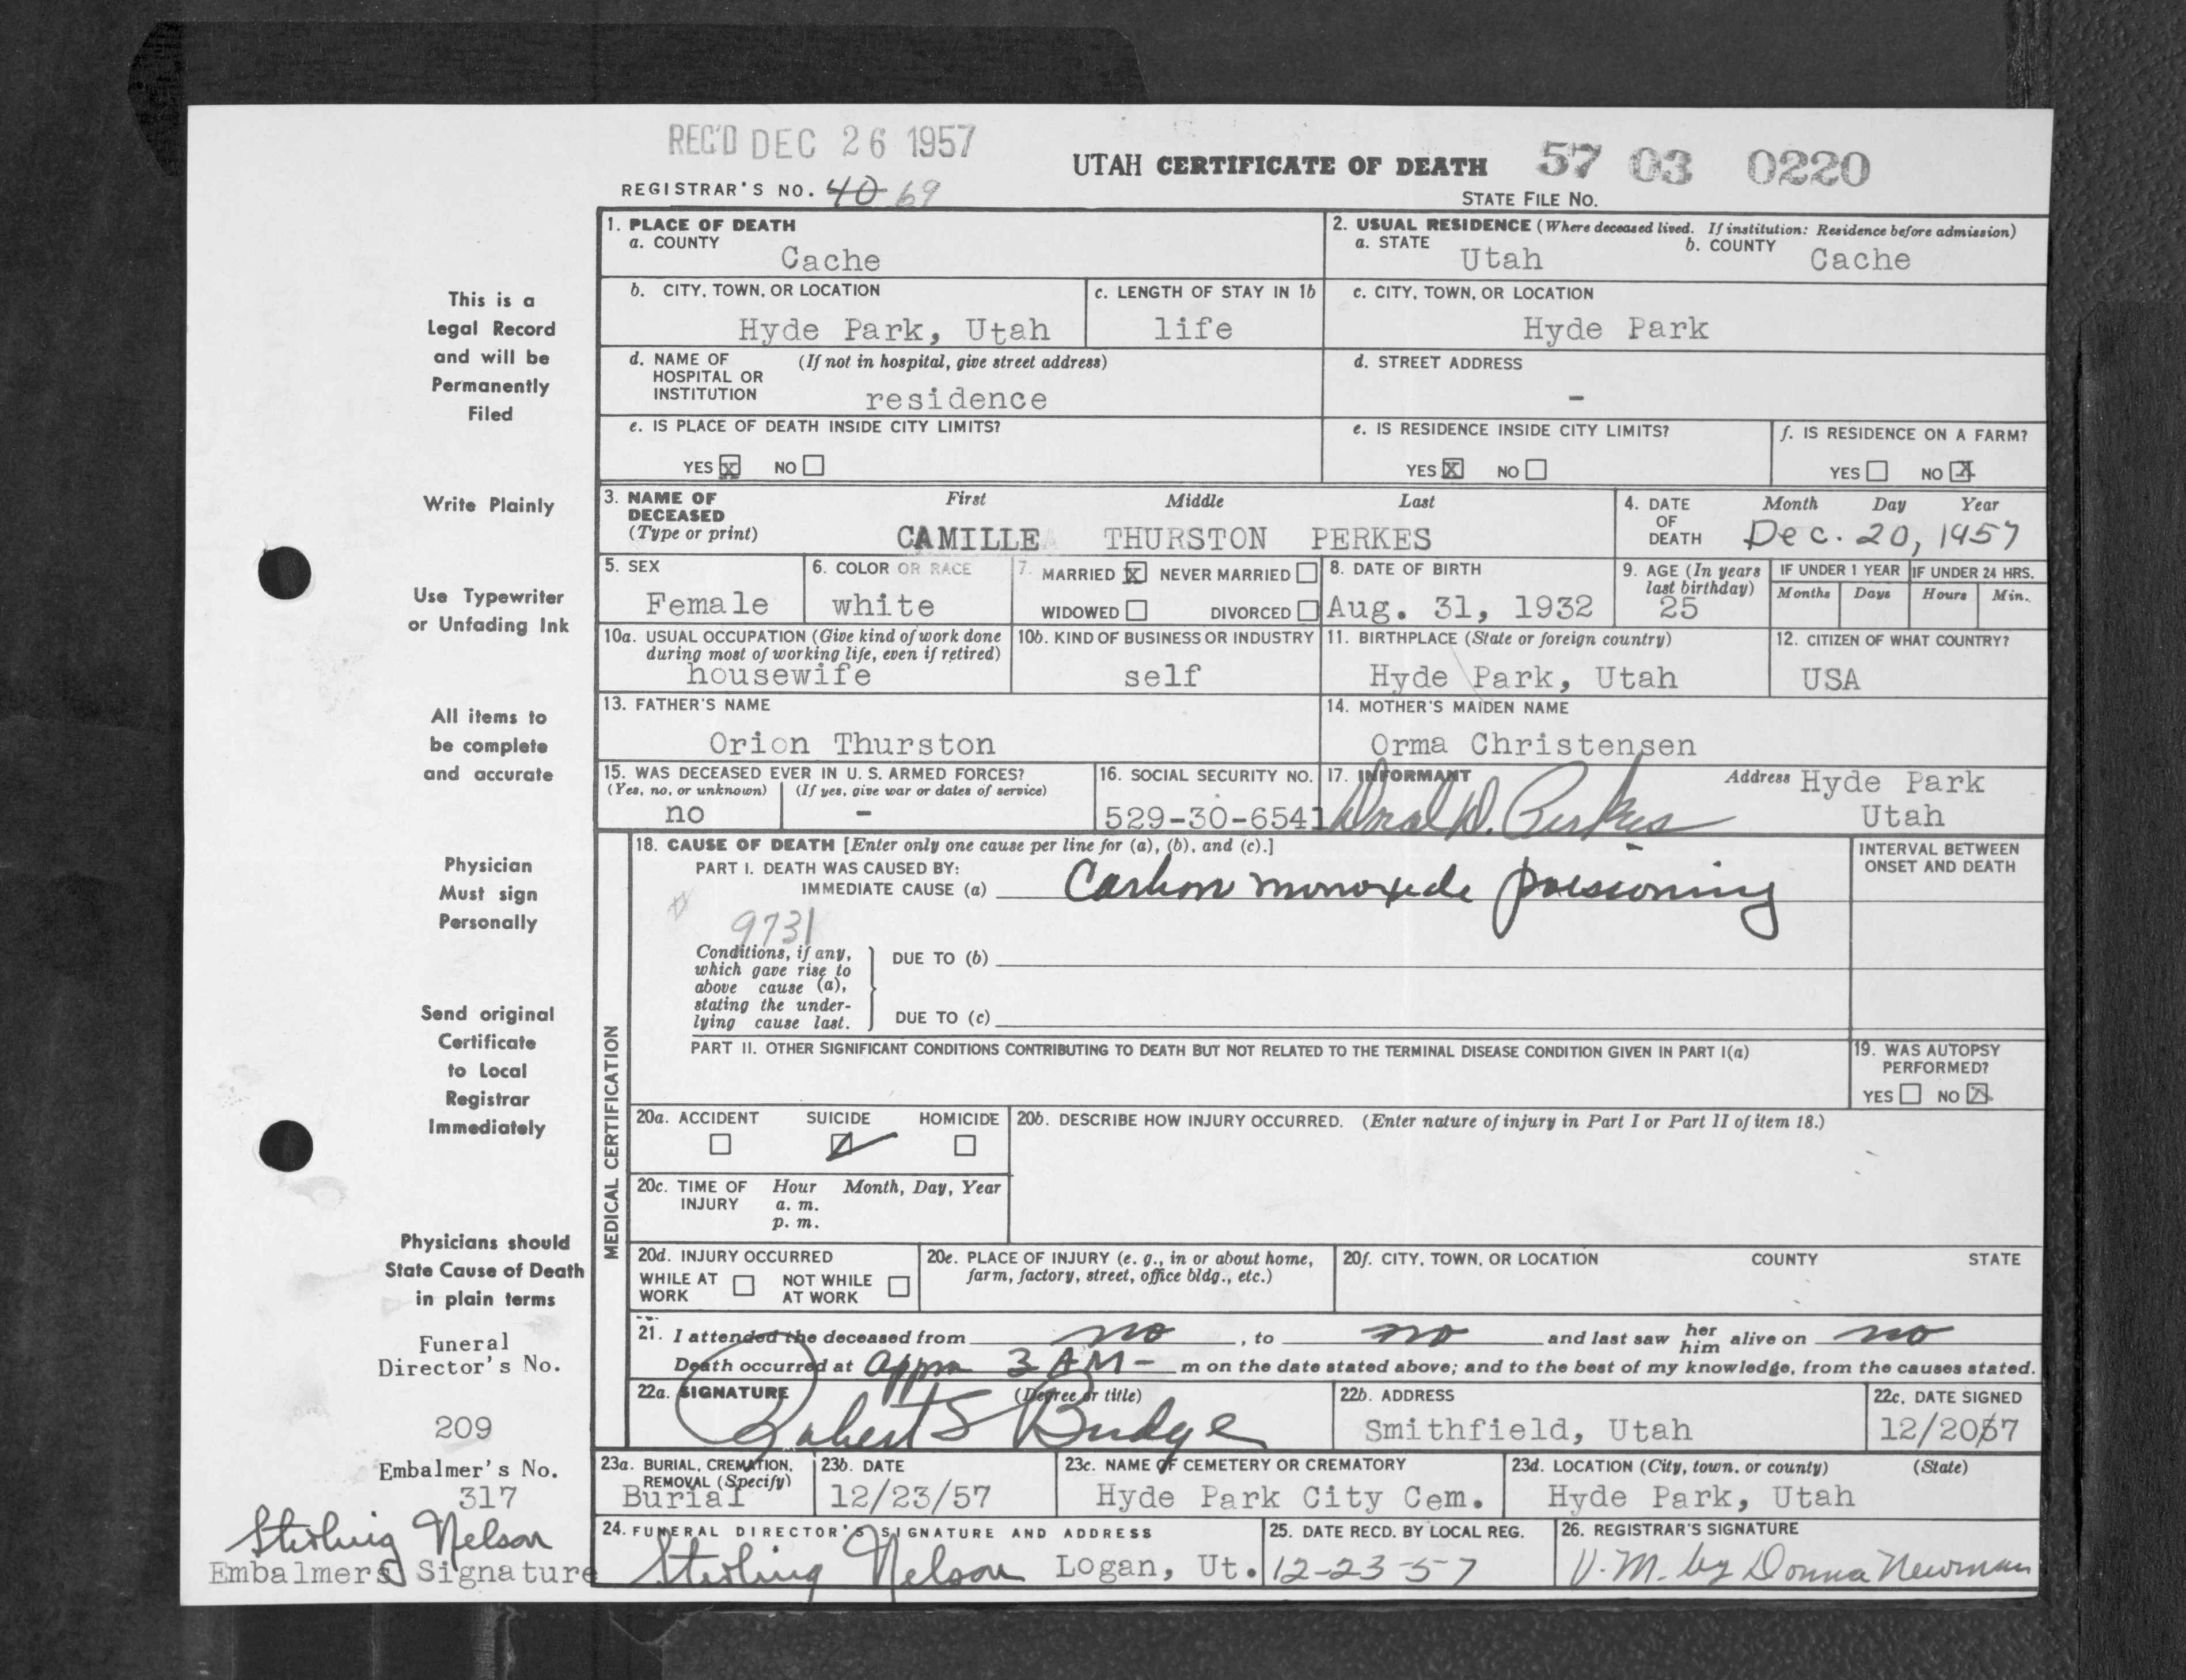 REC'D DEC 26 1957
UTAH CERTIFICATE OF DEATH 57 03 0220
REGISTRAR'S NO. 40 69
STATE FILE No.
1. PLACE OF DEATH
a. COUNTY
Cache
2. USUAL RESIDENCE (Where deceased lived. If institution: Residence before admission)
a. STATE Utah b. COUNTY Cache
b. CITY, TOWN, OR LOCATION
Hyde Park, Utah
c. LENGTH OF STAY IN 1b
life
c. CITY, TOWN, OR LOCATION
Hyde Park
d. NAME OF (If not in hospital, give street address)
HOSPITAL OR
INSTITUTION residence
d. STREET ADDRESS
-
e. IS PLACE OF DEATH INSIDE CITY LIMITS?
YES X NO
e. IS RESIDENCE INSIDE CITY LIMITS?
YES X NO
f. IS RESIDENCE ON A FARM?
YES NO X
3. NAME OF First Middle Last
DECEASED
(Type or print) CAMILLE THURSTON PERKES
4. DATE Month Day Year
OF
DEATH Dec. 20, 1957
5. SEX
Female
6. COLOR OR RACE
white
7. MARRIED X NEVER MARRIED
WIDOWED DIVORCED
8. DATE OF BIRTH
Aug. 31, 1932
9. AGE (In years
last birthday)
25
IF UNDER 1 YEAR IF UNDER 24 HRS.
Months Days Hours Min.
10a. USUAL OCCUPATION (Give kind of work done
during most of working life, even if retired)
housewife
10b. KIND OF BUSINESS OR INDUSTRY
self
11. BIRTHPLACE (State or foreign country)
Hyde Park, Utah
12. CITIZEN OF WHAT COUNTRY?
USA
13. FATHER'S NAME
Orion Thurston
14. MOTHER'S MAIDEN NAME
Orma Christensen
15. WAS DECEASED EVER IN U. S. ARMED FORCES?
(Yes, no, or unknown) (If yes, give war or dates of service)
no -
16. SOCIAL SECURITY NO.
529-30-6541
17. INFORMANT Address Hyde Park
Perkes Utah
MEDICAL CERTIFICATION
18. CAUSE OF DEATH [Enter only one cause per line for (a), (b), and (c).]
PART I. DEATH WAS CAUSED BY:
IMMEDIATE CAUSE (a) Carbon monoxide poisioning
INTERVAL BETWEEN
ONSET AND DEATH
9731
Conditions, if any,
which gave rise to
above cause (a),
stating the under-
lying cause last.
DUE TO (b)
DUE TO (c)
PART II. OTHER SIGNIFICANT CONDITIONS CONTRIBUTING TO DEATH BUT NOT RELATED TO THE TERMINAL DISEASE CONDITION GIVEN IN PART I(a)
19. WAS AUTOPSY
PERFORMED?
YES NO X
20a. ACCIDENT SUICIDE HOMICIDE
20b. DESCRIBE HOW INJURY OCCURRED. (Enter nature of injury in Part I or Part II of item 18.)
20c. TIME OF Hour Month, Day, Year
INJURY a. m.
p. m.
20d. INJURY OCCURRED
WHILE AT NOT WHILE
WORK AT WORK
20e. PLACE OF INJURY (e. g., in or about home,
farm, factory, street, office bldg., etc.)
20f. CITY, TOWN, OR LOCATION COUNTY STATE
21. I attended the deceased from no, to no and last saw her him alive on no
Death occurred at appx 3 AM- m on the date stated above; and to the best of my knowledge, from the causes stated.
22a. SIGNATURE (Degree or title)
Robert S Budge
22b. ADDRESS
Smithfield, Utah
22c. DATE SIGNED
12/20/57
23a. BURIAL, CREMATION,
REMOVAL (Specify)
Burial
23b. DATE
12/23/57
23c. NAME OF CEMETERY OR CREMATORY
Hyde Park City Cem.
23d. LOCATION (City, town, or county) (State)
Hyde Park, Utah
24. FUNERAL DIRECTOR'S SIGNATURE AND ADDRESS
Sterling Nelson Logan, Ut.
25. DATE RECD. BY LOCAL REG.
12-23-57
26. REGISTRAR'S SIGNATURE
V. M. by Donna Newman
This is a
Legal Record
and will be
Permanently
Filed
Write Plainly
Use Typewriter
or Unfading Ink
All items to
be complete
and accurate
Physician
Must sign
Personally
Send original
Certificate
to Local
Registrar
Immediately
Physicians should
State Cause of Death
in plain terms
Funeral
Director's No.
209
Embalmer's No.
317
Sterling Nelson
Embalmers Signature